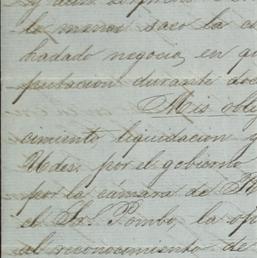 lo menos saco la
hadado negocio, en
putacion durante
Mis obli
cimiento, liquidacion y
Udes. por el gobierno
por la cámara de
el Sr. Pombo, la op
al reconocimiento de